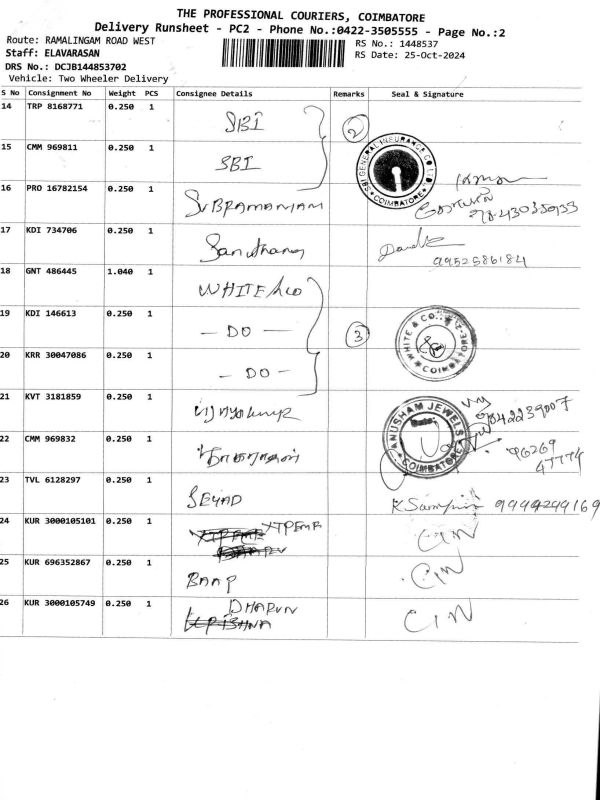 THE PROFESSIONAL COURIERS, COIMBATORE
Delivery Runsheet - PC2 - Phone No.:0422-3505555 - Page No.:2
Route: RAMALINGAM ROAD WEST
RS No.: 1448537
Staff: ELAVARASAN
RS Date: 25-Oct-2024
DRS No.: DCJB144853702
Vehicle: Two Wheeler Delivery
S No Consignment No Weight PCS Consignee Details Remarks Seal & Signature
14 TRP 8168771 0.250 1 SBI 2
15 CMM 969811 0.250 1 SBI SBI GENERAL INSURANCE CO LTD COIMBATORE
16 PRO 16782154 0.250 1 SUBRAMANIAM
17 KDI 734706 0.250 1 9952586184
18 GNT 486445 1.040 1 WHITE &co
19 KDI 146613 0.250 1 - DO - 3 WHITE & CO. COIMBATORE
20 KRR 30047086 0.250 1 - DO -
21 KVT 3181859 0.250 1 ANUSHAM JEWELS Date: COIMBATORE
22 CMM 969832 0.250 1 96269 47774
23 TVL 6128297 0.250 1 SEYAD
24 KUR 3000105101 0.250 1
25 KUR 696352867 0.250 1 BAAP
26 KUR 3000105749 0.250 1 DHARUN KRISHNA